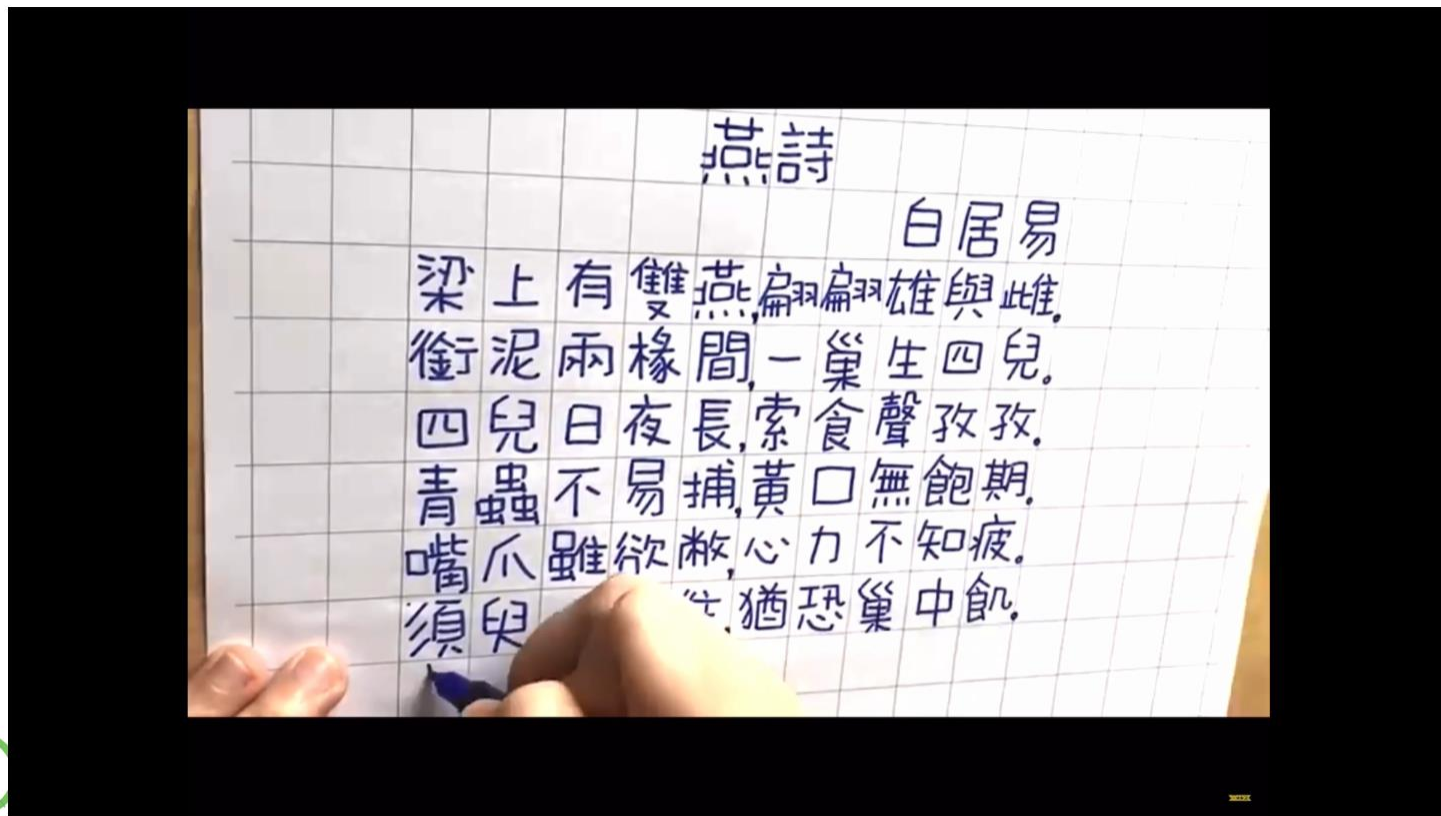 燕詩
白居易
梁上有雙燕,翩翩雄與雌.
銜泥兩椽間,一巢生四兒.
四兒日夜長,索食聲孜孜.
青蟲不易捕,黃口無飽期.
嘴爪雖欲敝,心力不知疲.
須臾 猶恐巢中飢.